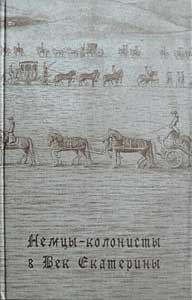 Немцы-колонисты
в Век Екатерины